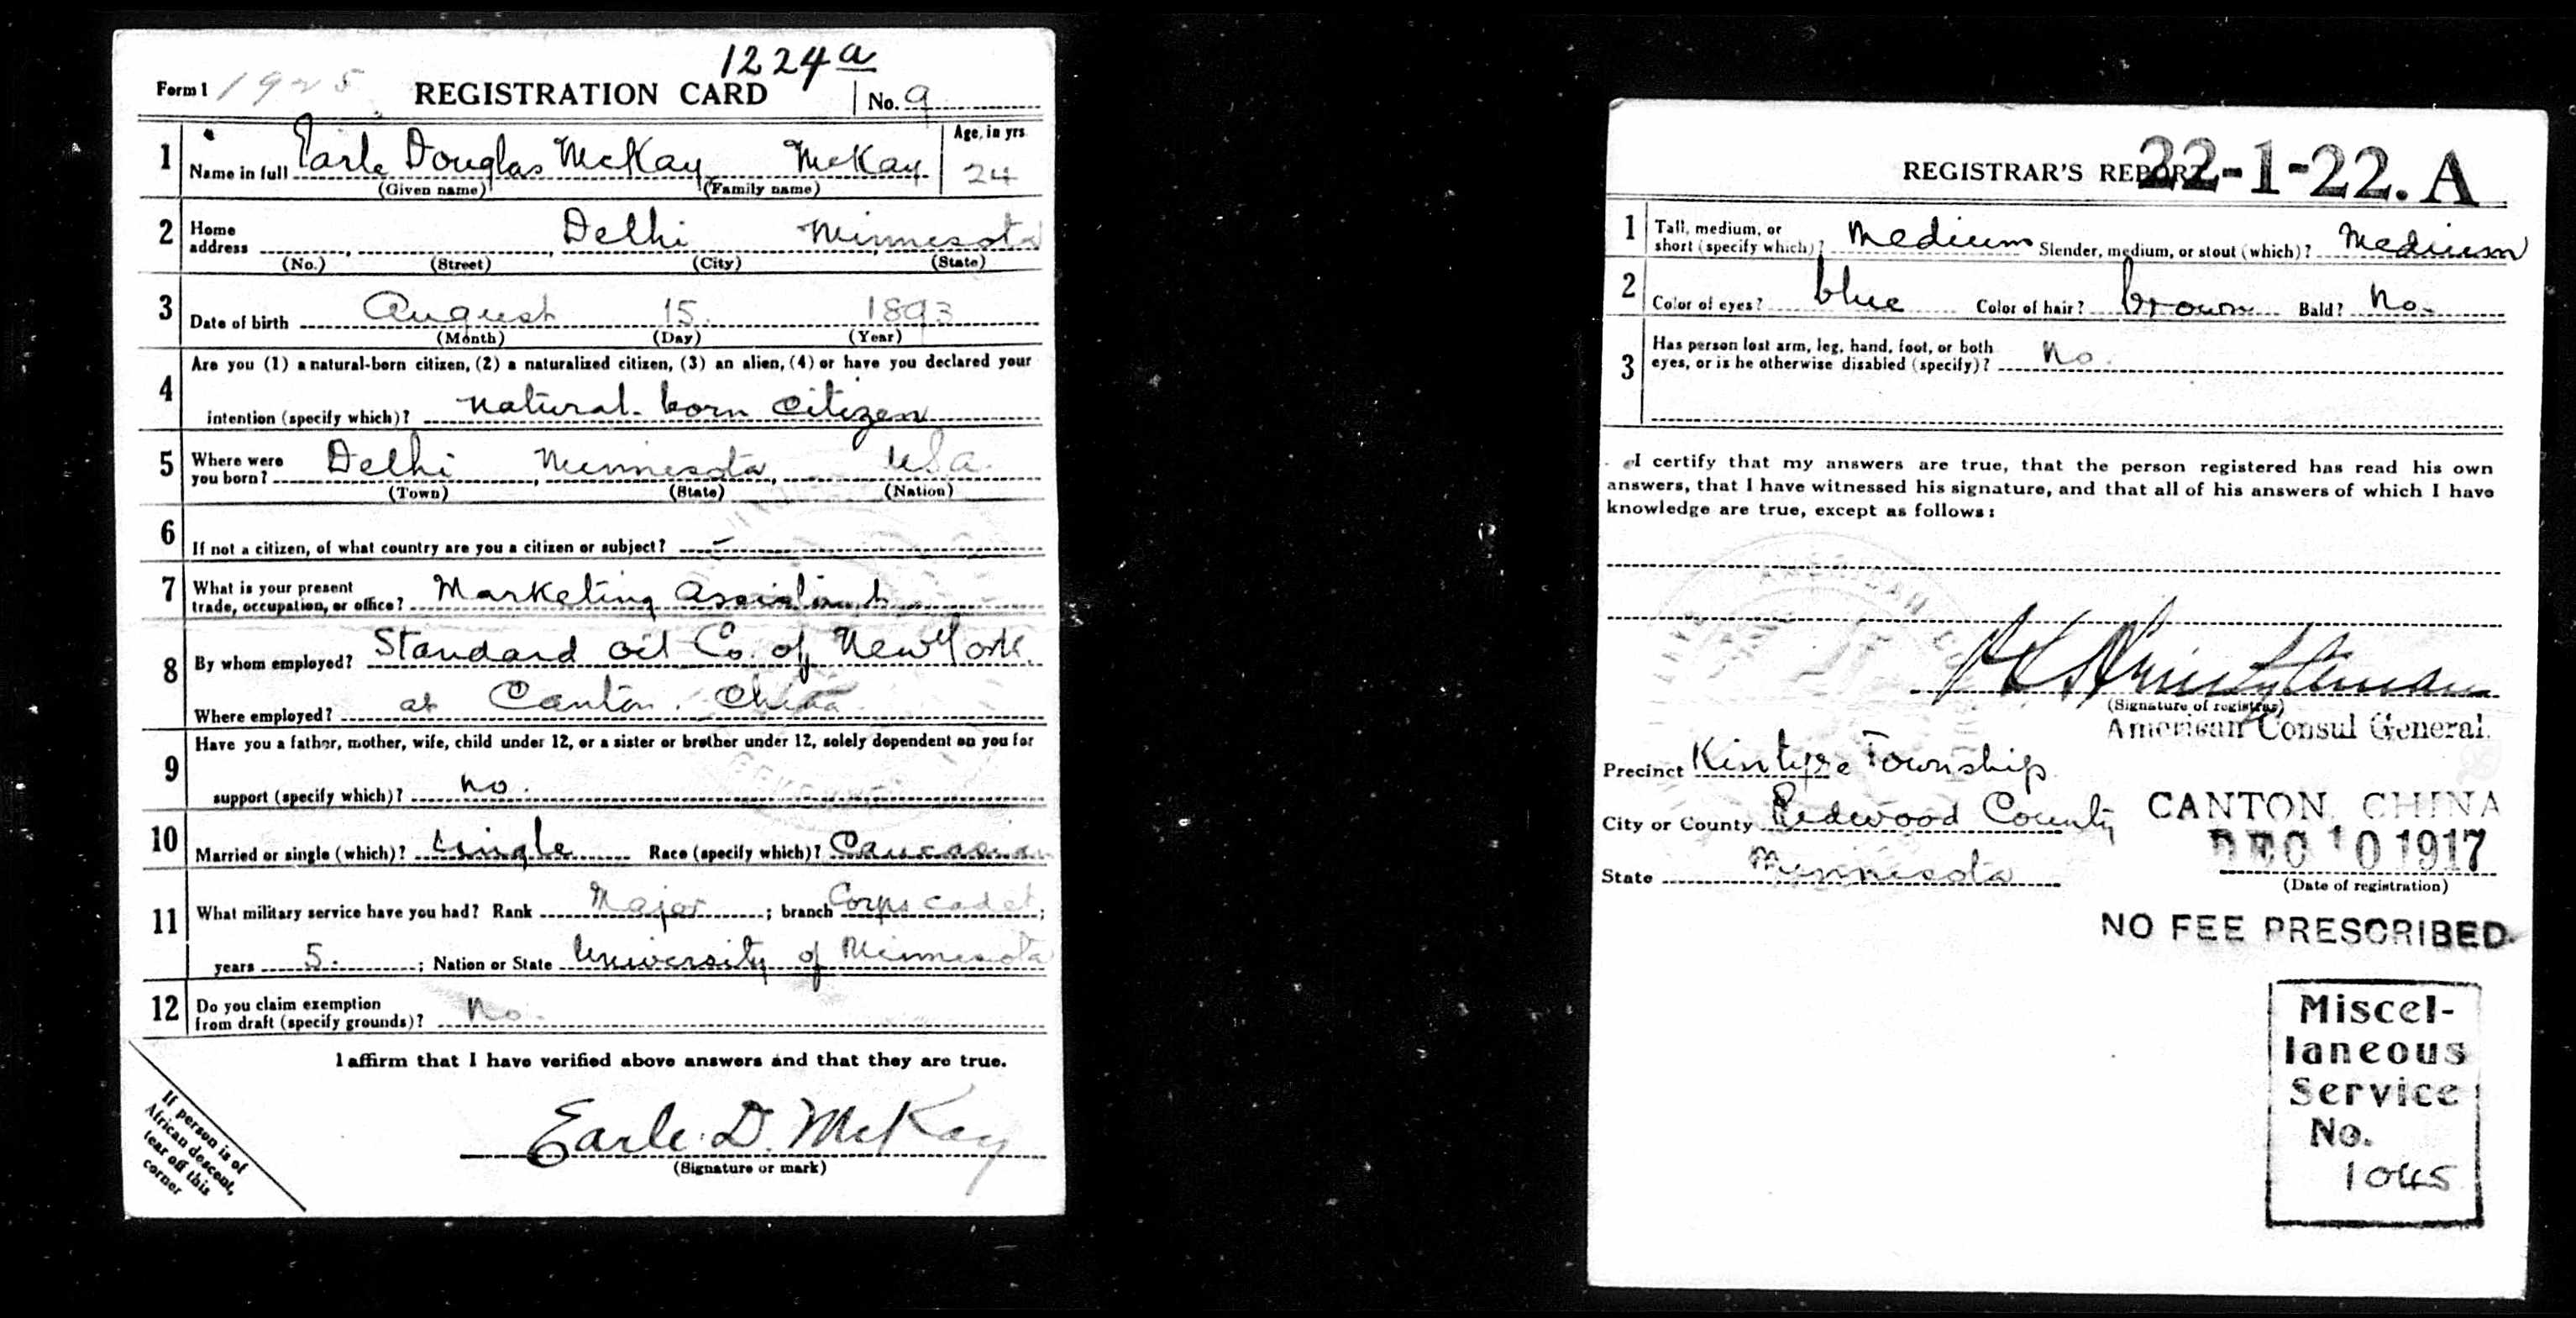 1224 a
Form 1 1925 REGISTRATION CARD No. 9
1 Name in full Earle Douglas McKay McKay Age, in yrs 24
(Given name) (Family name)
2 Home address Delhi Minnesota
(No.) (Street) (City) (State)
3 Date of birth August 15. 1893
(Month) (Day) (Year)
4 Are you (1) a natural-born citizen, (2) a naturalized citizen, (3) an alien, (4) or have you declared your
intention (specify which)? natural-born citizen
5 Where were you born? Delhi, Minnesota, USA.
(Town) (State) (Nation)
6 If not a citizen, of what country are you a citizen or subject? -
7 What is your present trade, occupation, or office? Marketing Assistant
8 By whom employed? Standard Oil Co. of New York.
Where employed? at Canton. China
9 Have you a father, mother, wife, child under 12, or a sister or brother under 12, solely dependent on you for
support (specify which)? no.
10 Married or single (which)? Single Race (specify which)? Caucasian
11 What military service have you had? Rank Major; branch Corps cadet;
years 5.; Nation or State University of Minnesota
12 Do you claim exemption from draft (specify grounds)? No.
I affirm that I have verified above answers and that they are true.
Earle D. McKay
(Signature or mark)
If person is of
African descent,
tear off this
corner
REGISTRAR'S REPORT 22-1-22. A
1 Tall, medium, or short (specify which)? Medium Slender, medium, or stout (which)? Medium
2 Color of eyes? blue Color of hair? brown Bald? No.
3 Has person lost arm, leg, hand, foot, or both
eyes, or is he otherwise disabled (specify)? No.
I certify that my answers are true, that the person registered has read his own
answers, that I have witnessed his signature, and that all of his answers of which I have
knowledge are true, except as follows:
(Signature of registrar)
American Consul General.
Precinct Kintyre Township
City or County Redwood County
State Minnesota
CANTON, CHINA
DEC 10 1917
(Date of registration)
NO FEE PRESCRIBED.
Miscel-
laneous
Service
No.
1045